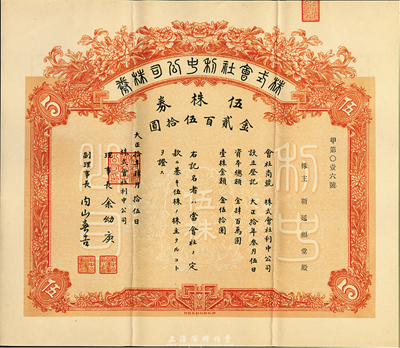 株式會社利中公司株券
伍株券
金貳百伍拾圓
甲第〇壹六號
株主 殿
會社商號 株式會社利中公司
設立登記 大正拾年叁月伍日
資本總額 金肆百萬圓
壹株金額 金伍拾圓
右記名者ハ當會社ノ定
款ニ基キ伍株ノ株主タルコト
ヲ證ス
大正拾年 月拾伍日
株式會社利中公司
理事長 余幼庚
副理事長 内山
伍
5
5
伍